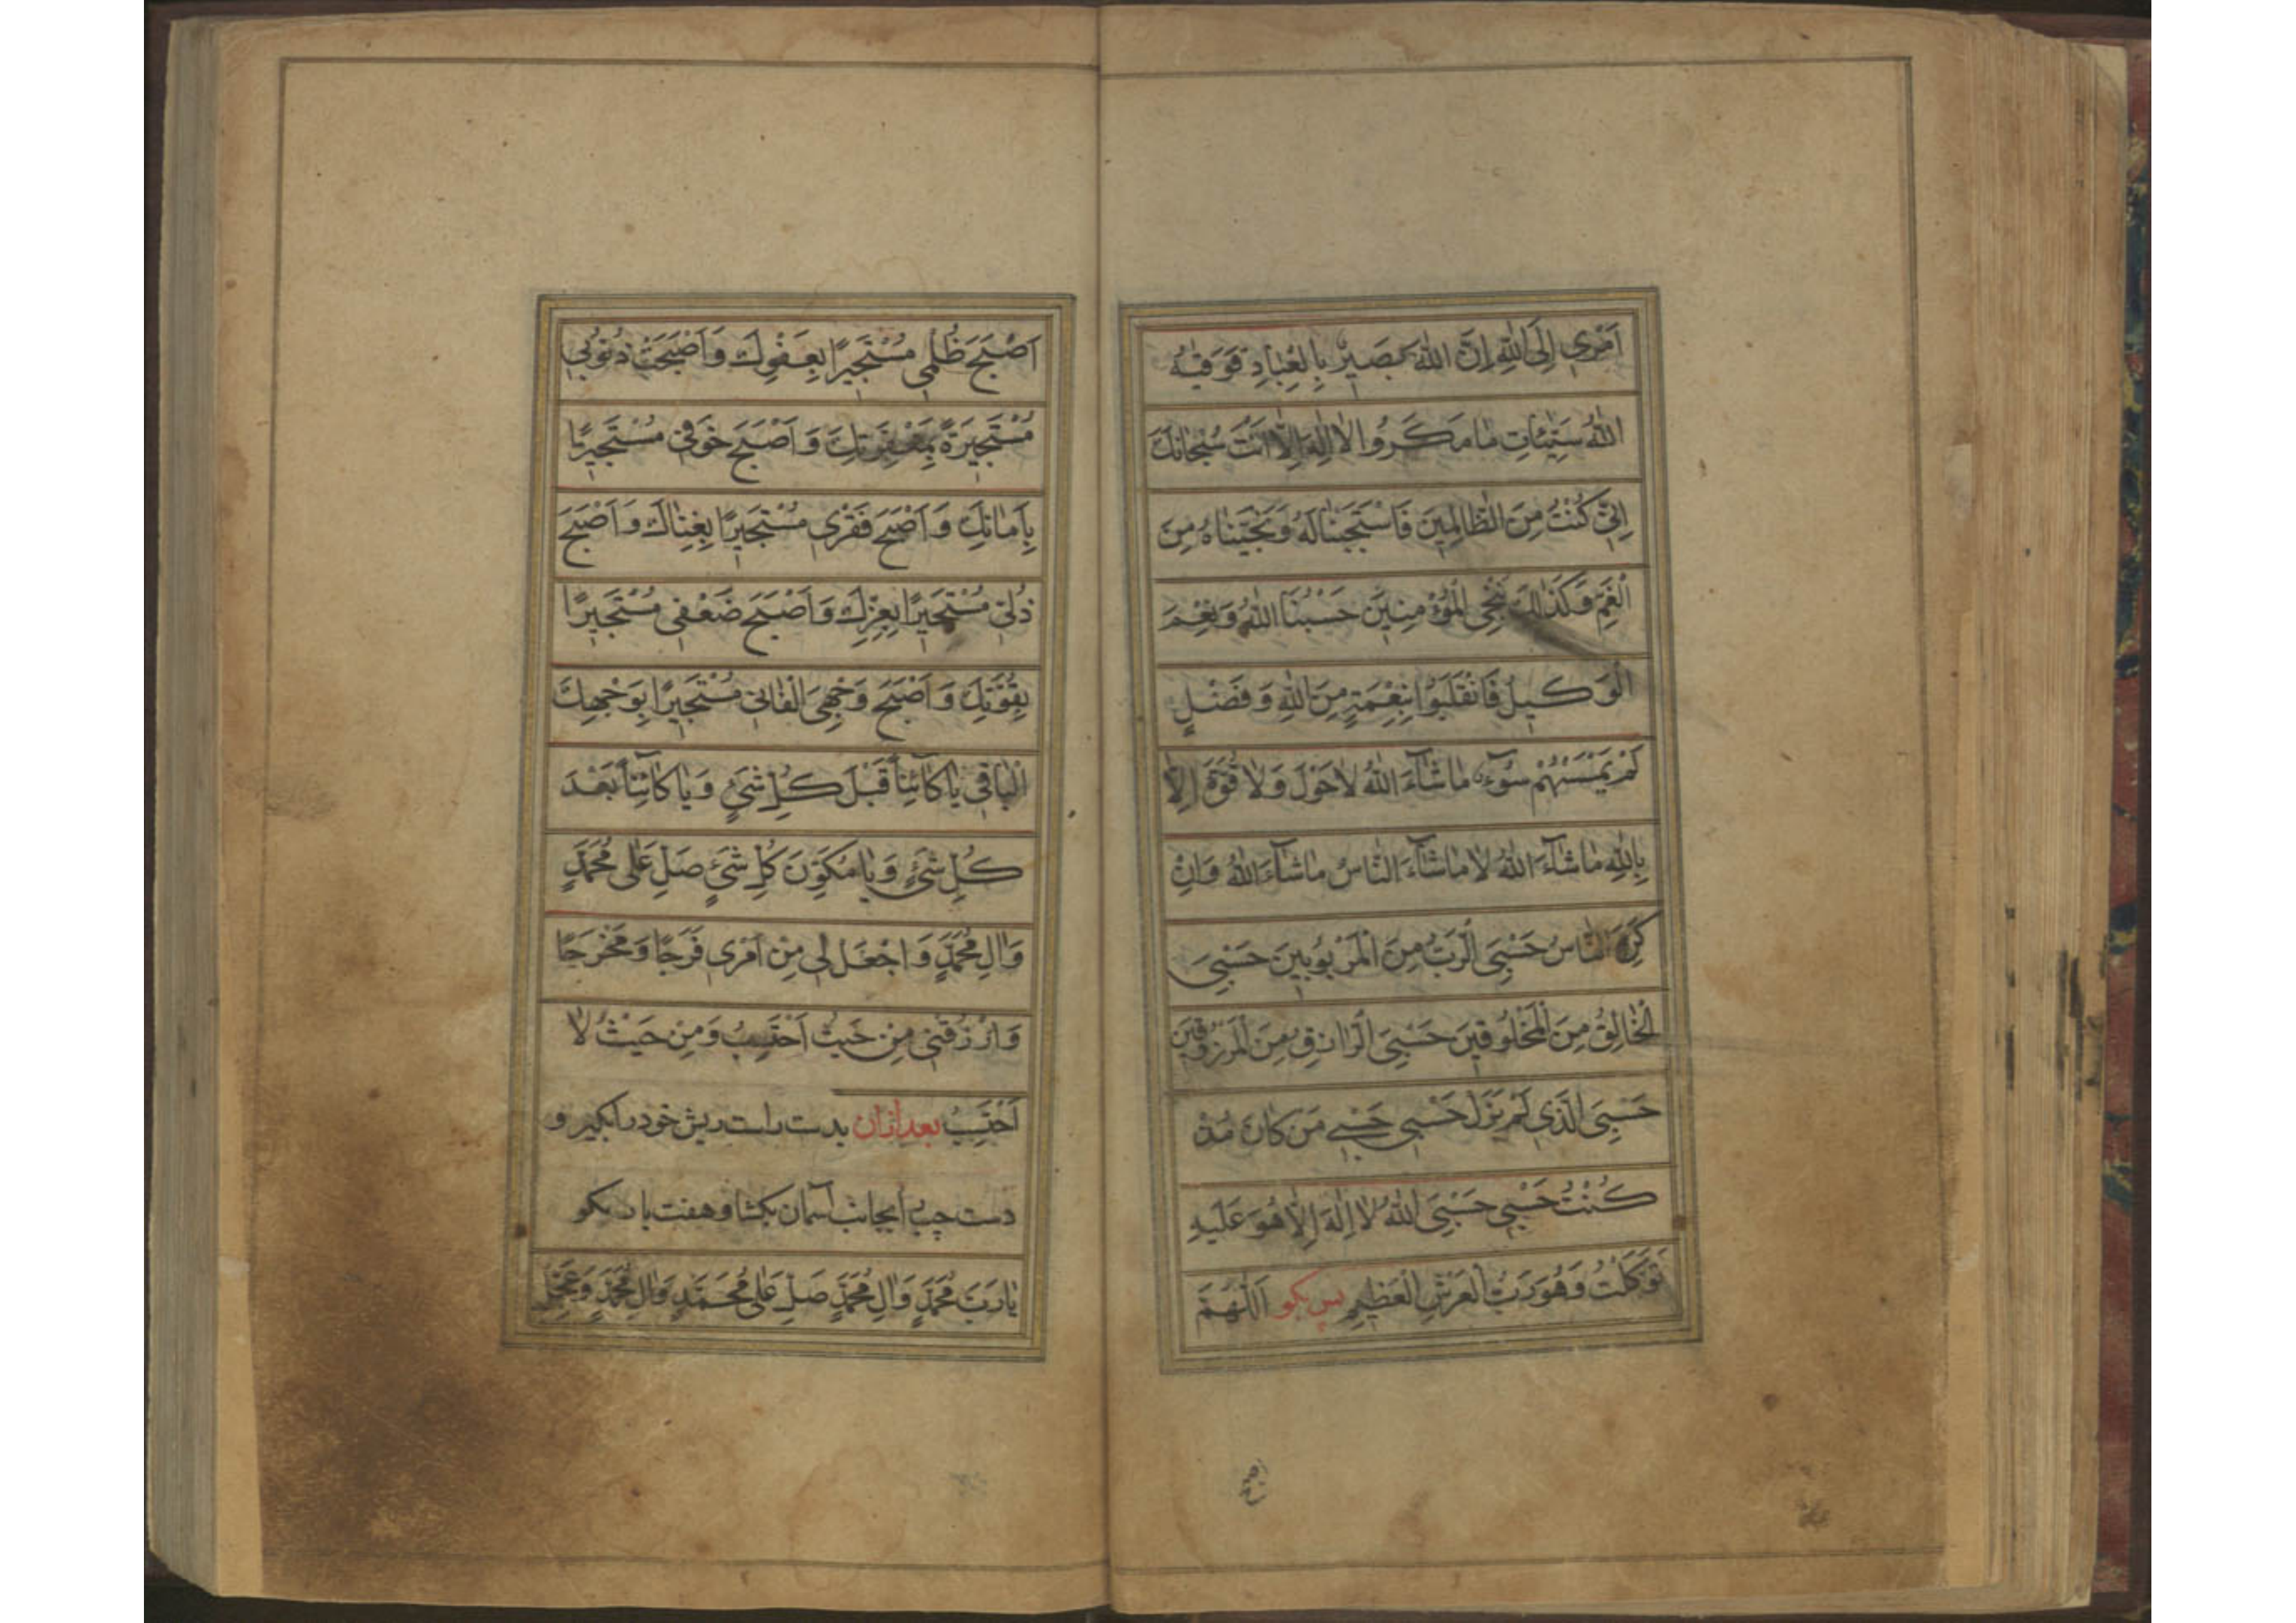 اَمْرِي اِلَى اللهِ اِنَّ اللهَ بَصِيرٌ بِالْعِبٰادِ فَوَقٰيهُ
اللهُ سَيِّئٰاتِ مٰا مَكَرُوا لاٰ اِلٰهَ اِلاّٰ اَنْتَ سُبْحٰانَكَ
اِنّى كُنْتُ مِنَ الظّٰالِمِينَ فَاسْتَجَبْنٰا لَهُ وَنَجَّيْنٰاهُ مِنَ
الْغَمِّ وَكَذٰلِكَ نُنْجِى الْمُؤْمِنِينَ حَسْبُنَا اللهُ وَنِعْمَ
الْوَكيلُ فَانْقَلَبُوا بِنِعْمَةٍ مِنَ اللهِ وَفَضْلٍ
لَمْ يَمْسَسْهُمْ سُوءٌ مٰا شٰاءَ اللهُ لاٰ حَوْلَ وَلاٰ قُوَّةَ اِلاّٰ
بِاللهِ مٰا شٰاءَ اللهُ لاٰ مٰا شٰاءَ النّٰاسُ مٰا شٰاءَ اللهُ وَاِنْ
كَرِهَ النّٰاسُ حَسْبِىَ الرَّبُّ مِنَ الْمَرْبُوبينَ حَسْبِىَ
الْخٰالِقُ مِنَ الْمَخْلُوقينَ حَسْبِىَ الرّٰازِقُ مِنَ الْمَرْزُوقينَ
حَسْبِىَ الَّذى لَمْ يَزَلْ حَسْبى حَسْبى مَنْ كٰانَ مُذْ
كُنْتُ حَسْبى حَسْبِىَ اللهُ لاٰ اِلٰهَ اِلاّٰ هُوَ عَلَيْهِ
تَوَكَّلْتُ وَهُوَ رَبُّ الْعَرْشِ الْعَظيمِ پس بكو اَللّٰهُمَّ
اَصْبَحَ ظُلْمى مُسْتَجيرًا بِعَفْوِكَ وَاَصْبَحَتْ ذُنُوبى
مُسْتَجيرَةً بِمَغْفِرَتِكَ وَاَصْبَحَ خَوْفى مُسْتَجيرًا
بِاَمٰانِكَ وَاَصْبَحَ فَقْرى مُسْتَجيرًا بِغِنٰاكَ وَاَصْبَحَ
ذُلّى مُسْتَجيرًا بِعِزِّكَ وَاَصْبَحَ ضَعْفى مُسْتَجيرًا
بِقُوَّتِكَ وَاَصْبَحَ وَجْهِىَ الْفٰانى مُسْتَجيرًا بِوَجْهِكَ
الْبٰاقى يٰا كٰائِنًا قَبْلَ كُلِّ شَىْءٍ وَيٰا كٰائِنًا بَعْدَ
كُلِّ شَىْءٍ وَيٰا مُكَوِّنَ كُلِّ شَىْءٍ صَلِّ عَلٰى مُحَمَّدٍ
وَاٰلِ مُحَمَّدٍ وَاجْعَلْ لى مِنْ اَمْرى فَرَجًا وَمَخْرَجًا
وَارْزُقْنى مِنْ حَيْثُ اَحْتَسِبُ وَمِنْ حَيْثُ لاٰ
اَحْتَسِبُ بعد از ان بدست راست ريش خود را بكير و
دست چپ را بجانب آسمان بكشا و هفت بار بكو
يٰا رَبَّ مُحَمَّدٍ وَاٰلِ مُحَمَّدٍ صَلِّ عَلٰى مُحَمَّدٍ وَاٰلِ مُحَمَّدٍ وَعَجِّلْ